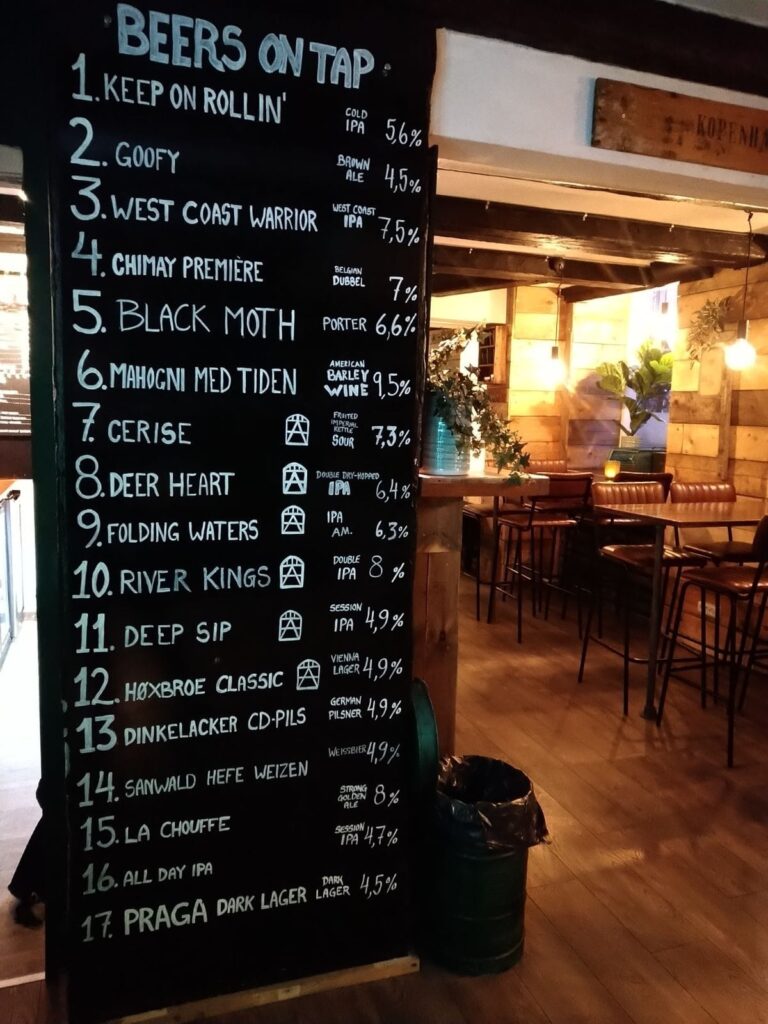 BEERS ON TAP
1. KEEP ON ROLLIN' COLD IPA 5,6%
2. GOOFY BROWN ALE 4,5%
3. WEST COAST WARRIOR WEST COAST IPA 7,5%
4. CHIMAY PREMIÈRE BELGIAN DUBBEL 7%
5. BLACK MOTH PORTER 6,6%
6. MAHOGNI MED TIDEN AMERICAN BARLEY WINE 9,5%
7. CERISE FRUITED IMPERIAL KETTLE SOUR 7,3%
8. DEER HEART DOUBLE DRY-HOPPED IPA 6,4%
9. FOLDING WATERS IPA AM. 6,3%
10. RIVER KINGS DOUBLE IPA 8 %
11. DEEP SIP SESSION IPA 4,9%
12. HØXBROE CLASSIC VIENNA LAGER 4,9%
13 DINKELACKER CD-PILS GERMAN PILSNER 4,9%
14. SANWALD HEFE WEIZEN WEISSBIER 4,9%
15. LA CHOUFFE STRONG GOLDEN ALE 8%
16. ALL DAY IPA SESSION IPA 4,7%
17. PRAGA DARK LAGER DARK LAGER 4,5%